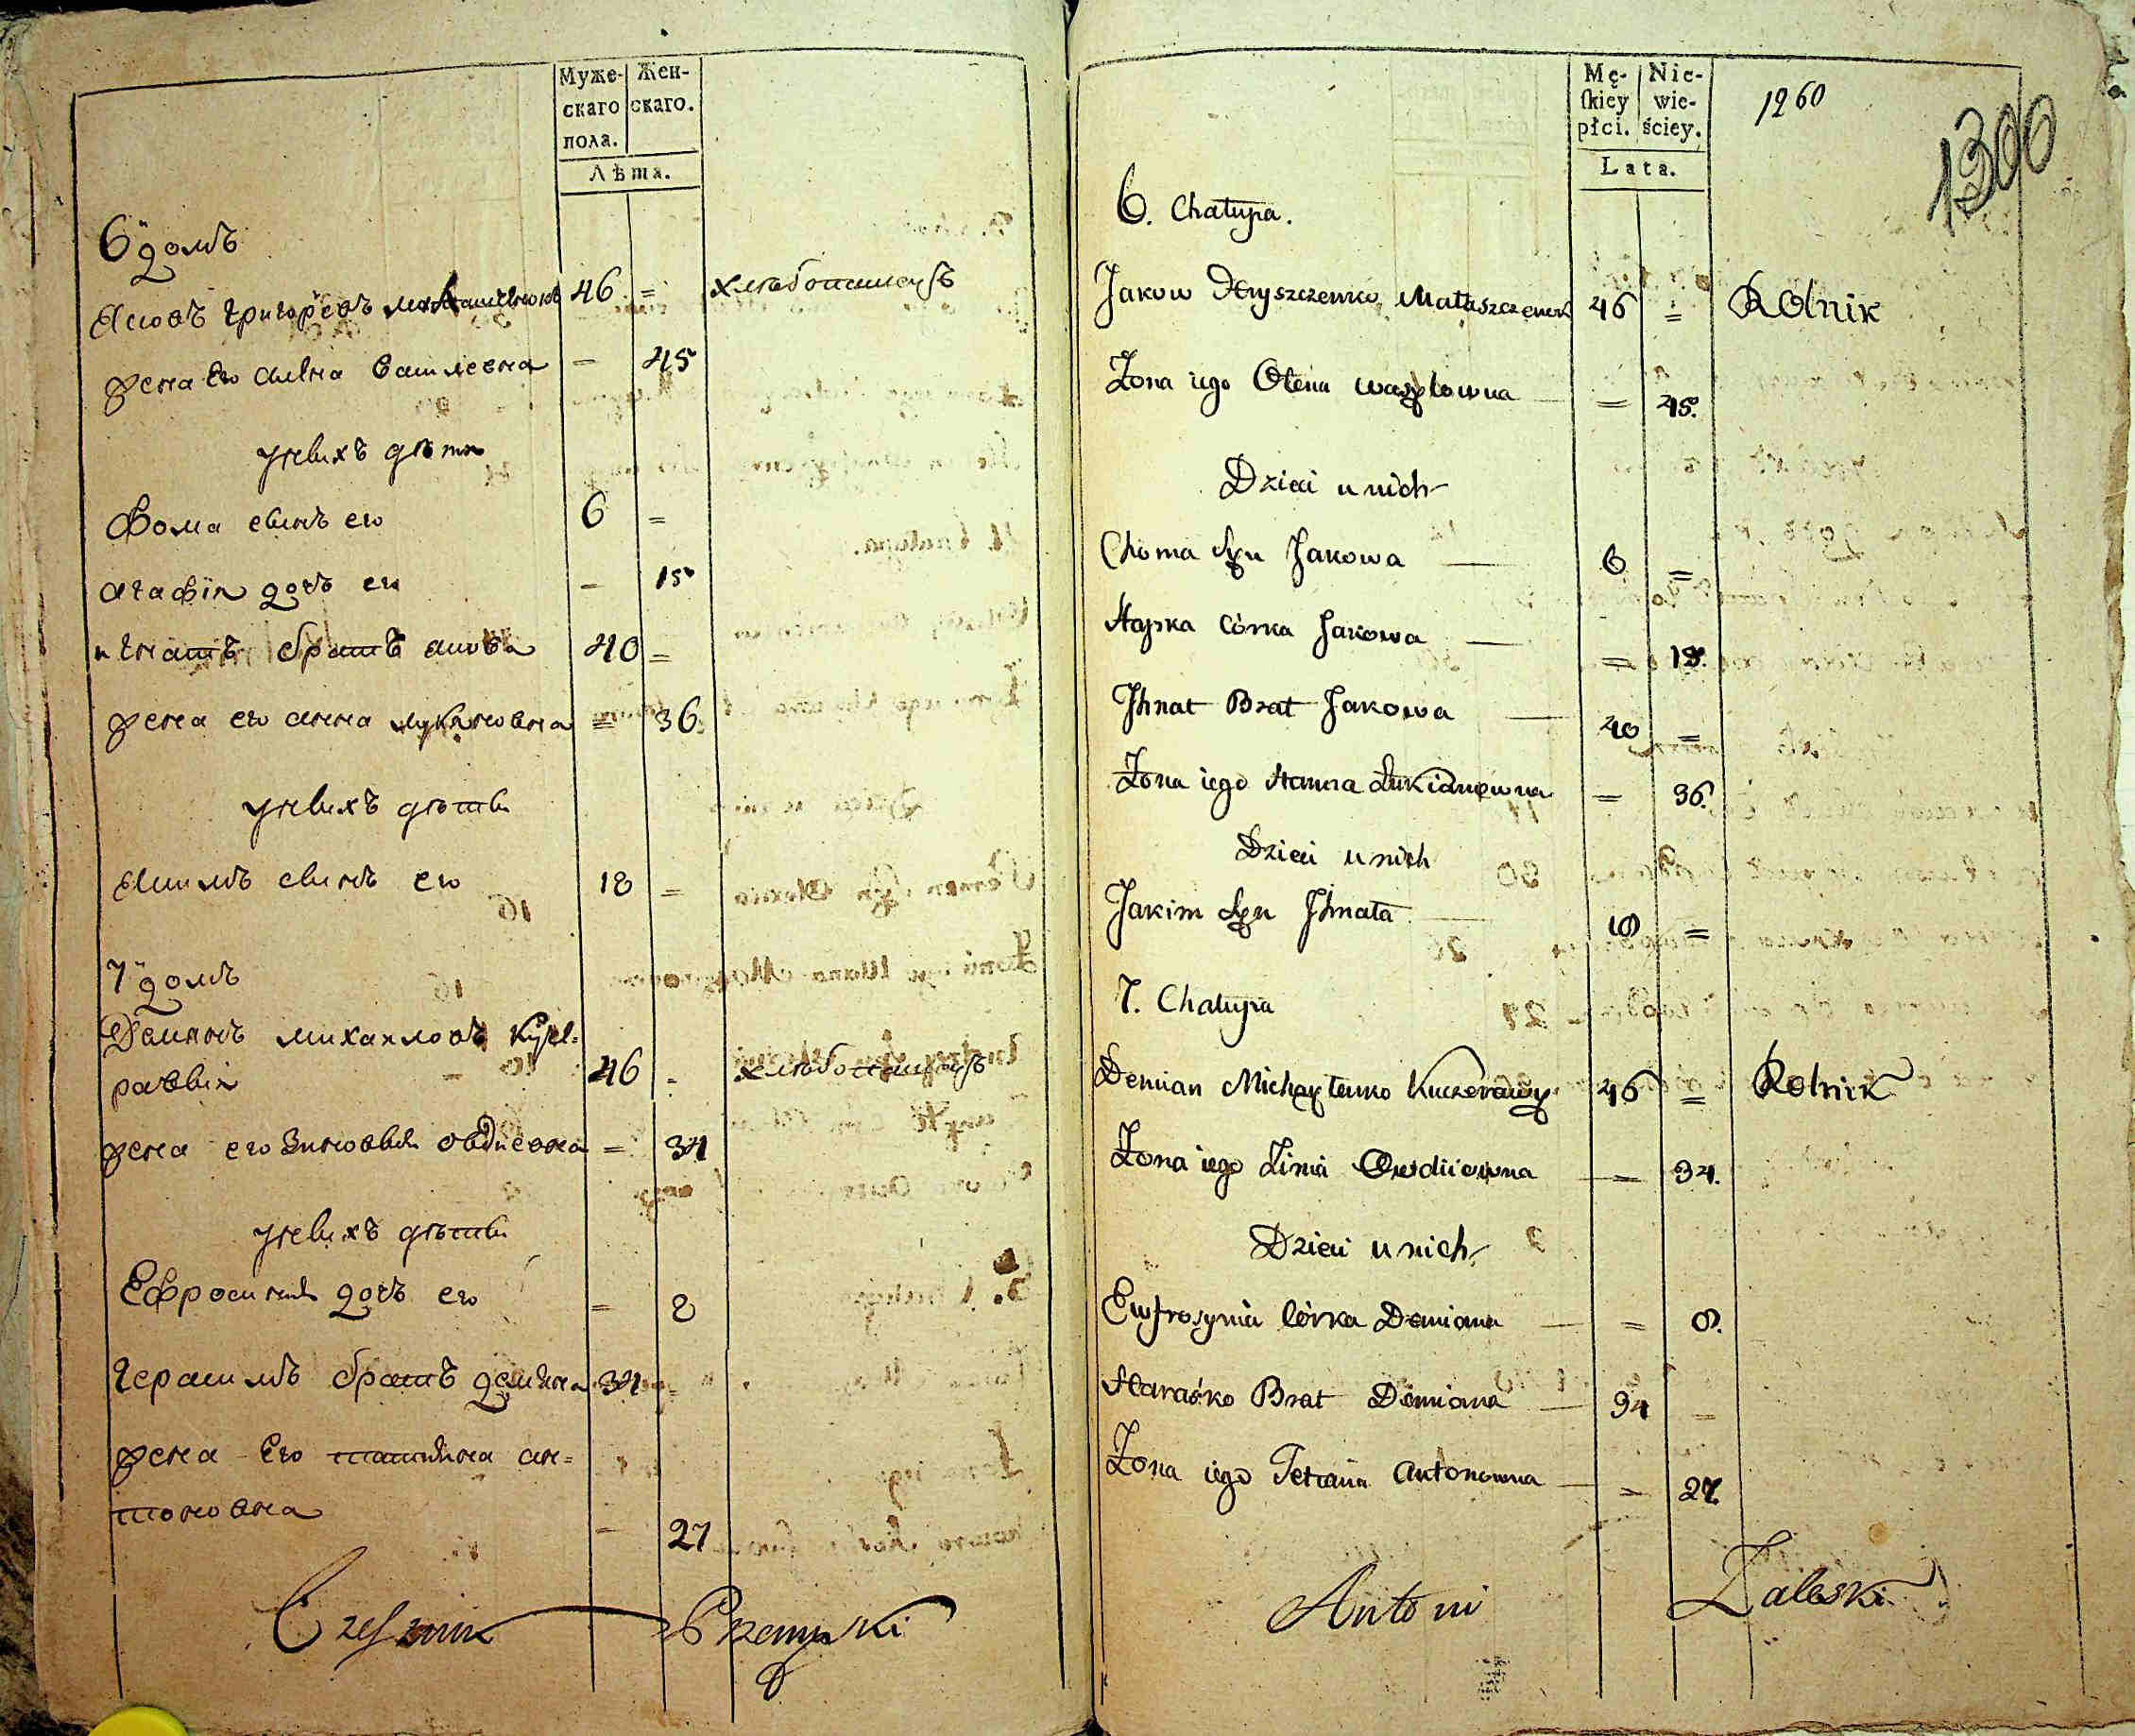 Муже-
скаго
пола.
Жен-
скаго.
Лѣта.
6 домъ
Яковъ Григорьевъ 46 = хлебопашецъ
жена Его Алена Василевна = 45
у нихъ дѣти
Фома сынъ его 6 =
Агафія дочь его = 15
Игнатъ братъ Якова 40 =
жена его Анна Лукяновна = 36
у нихъ дѣти
Якимъ сынъ его 18 =
7 домъ
Демянъ Михайловъ Куче-
равый 46 = хлебопашецъ
жена его Зиновья Овдиевна = 34
у нихъ дѣти
Ефросинья дочь его = 8
Герасимъ братъ Демяна 34 =
жена Его Татьяна Ан=
тоновна = 27
Czesznik Przemyski
Mę-
skiey
płci.
Nie-
wie-
ściey.
Lata.
1260
1300
6. Chałupa.
Jakow Hryszczenko Małaszczenok 46 = Rolnik
Żona iego Ołena Wasylowna = 45.
Dzieci u nich
Choma Syn Jakowa 6 =
Hapka Córka Jakowa = 15.
Jhnat Brat Jakowa 40 =
Żona iego Hanna Łukianowna = 36.
Dzieci u nich
Jakim Syn Jhnata 18 =
7. Chałupa
Demian Michayłenko Kuczerawy 46 = Rolnik
Żona iego Zinia Owdiiowna = 34.
Dzieci u nich
Ewfrosynia Córka Demiana = 8.
Haraśko Brat Demiana 34 =
Żona iego Tetiana Antonowna = 27.
Antoni Zaleski